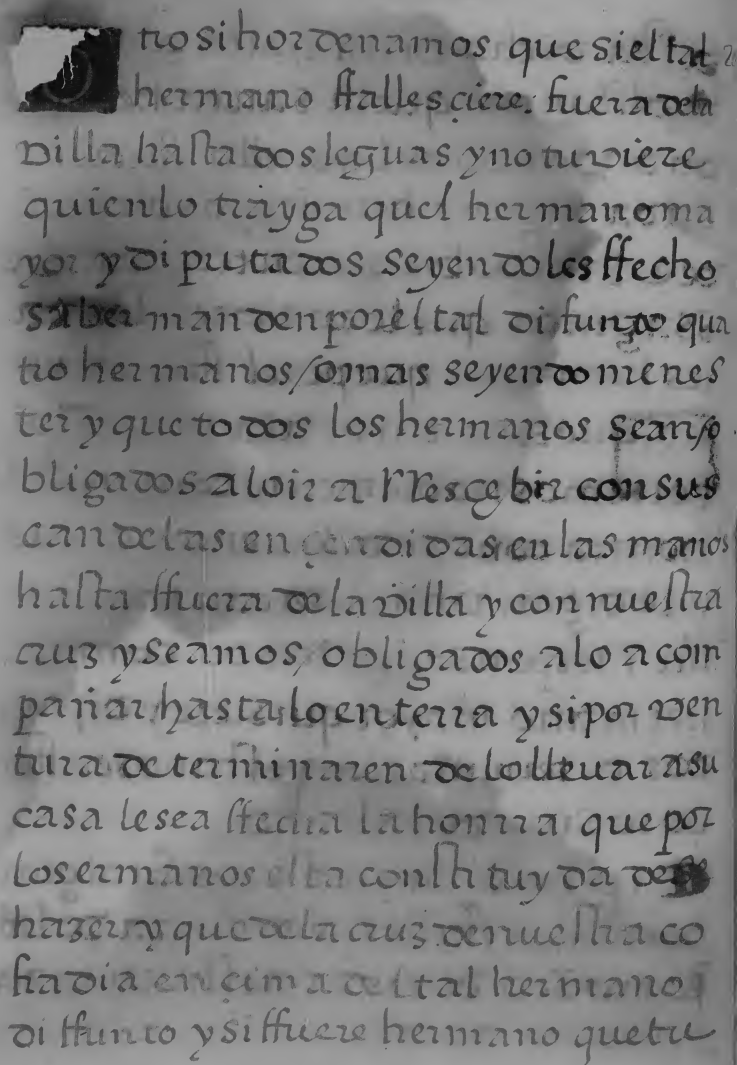 O tro si hordenamos que si el tal
hermano ffallesciere. fuera dela
villa hasta dos leguas y no tuviere
quien lo trayga quel hermano ma
yor y diputados seyendoles ffecho
saber manden por el tal difunto qua
tro hermanos / o mas seyendo menes
ter y que todos los hermanos sean / o
bligados a lo ir a rrescebir con sus
candelas encendidas en las manos
hasta ffuera dela villa y con nuestra
cruz y seamos obligados a lo acom
pañar hasta lo enterra y si por ven
tura determinaren de lo llevar a su
casa le sea ffecha la honrra que por
los ermanos esta constituyda de
hazer y que dela cruz de nuestra co
fradia encima del tal hermano
diffunto y si ffuere hermano que tu